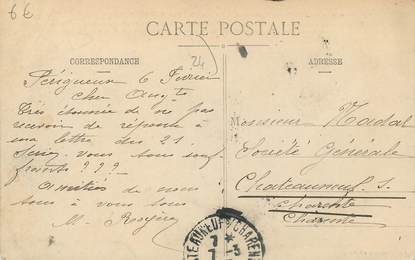 6€
CARTE POSTALE
24
CORRESPONDANCE
ADRESSE
Périgueux 6 Février
cher
Très étonnée de ne pas
recevoir de réponse à
ma lettre des 21
Seriez vous tous souf
frants ? ? ?
Amitiés de nous
tous à vous tous
M.
Monsieur Nadal
Société Générale
Chateauneuf S.
Charente
Charente